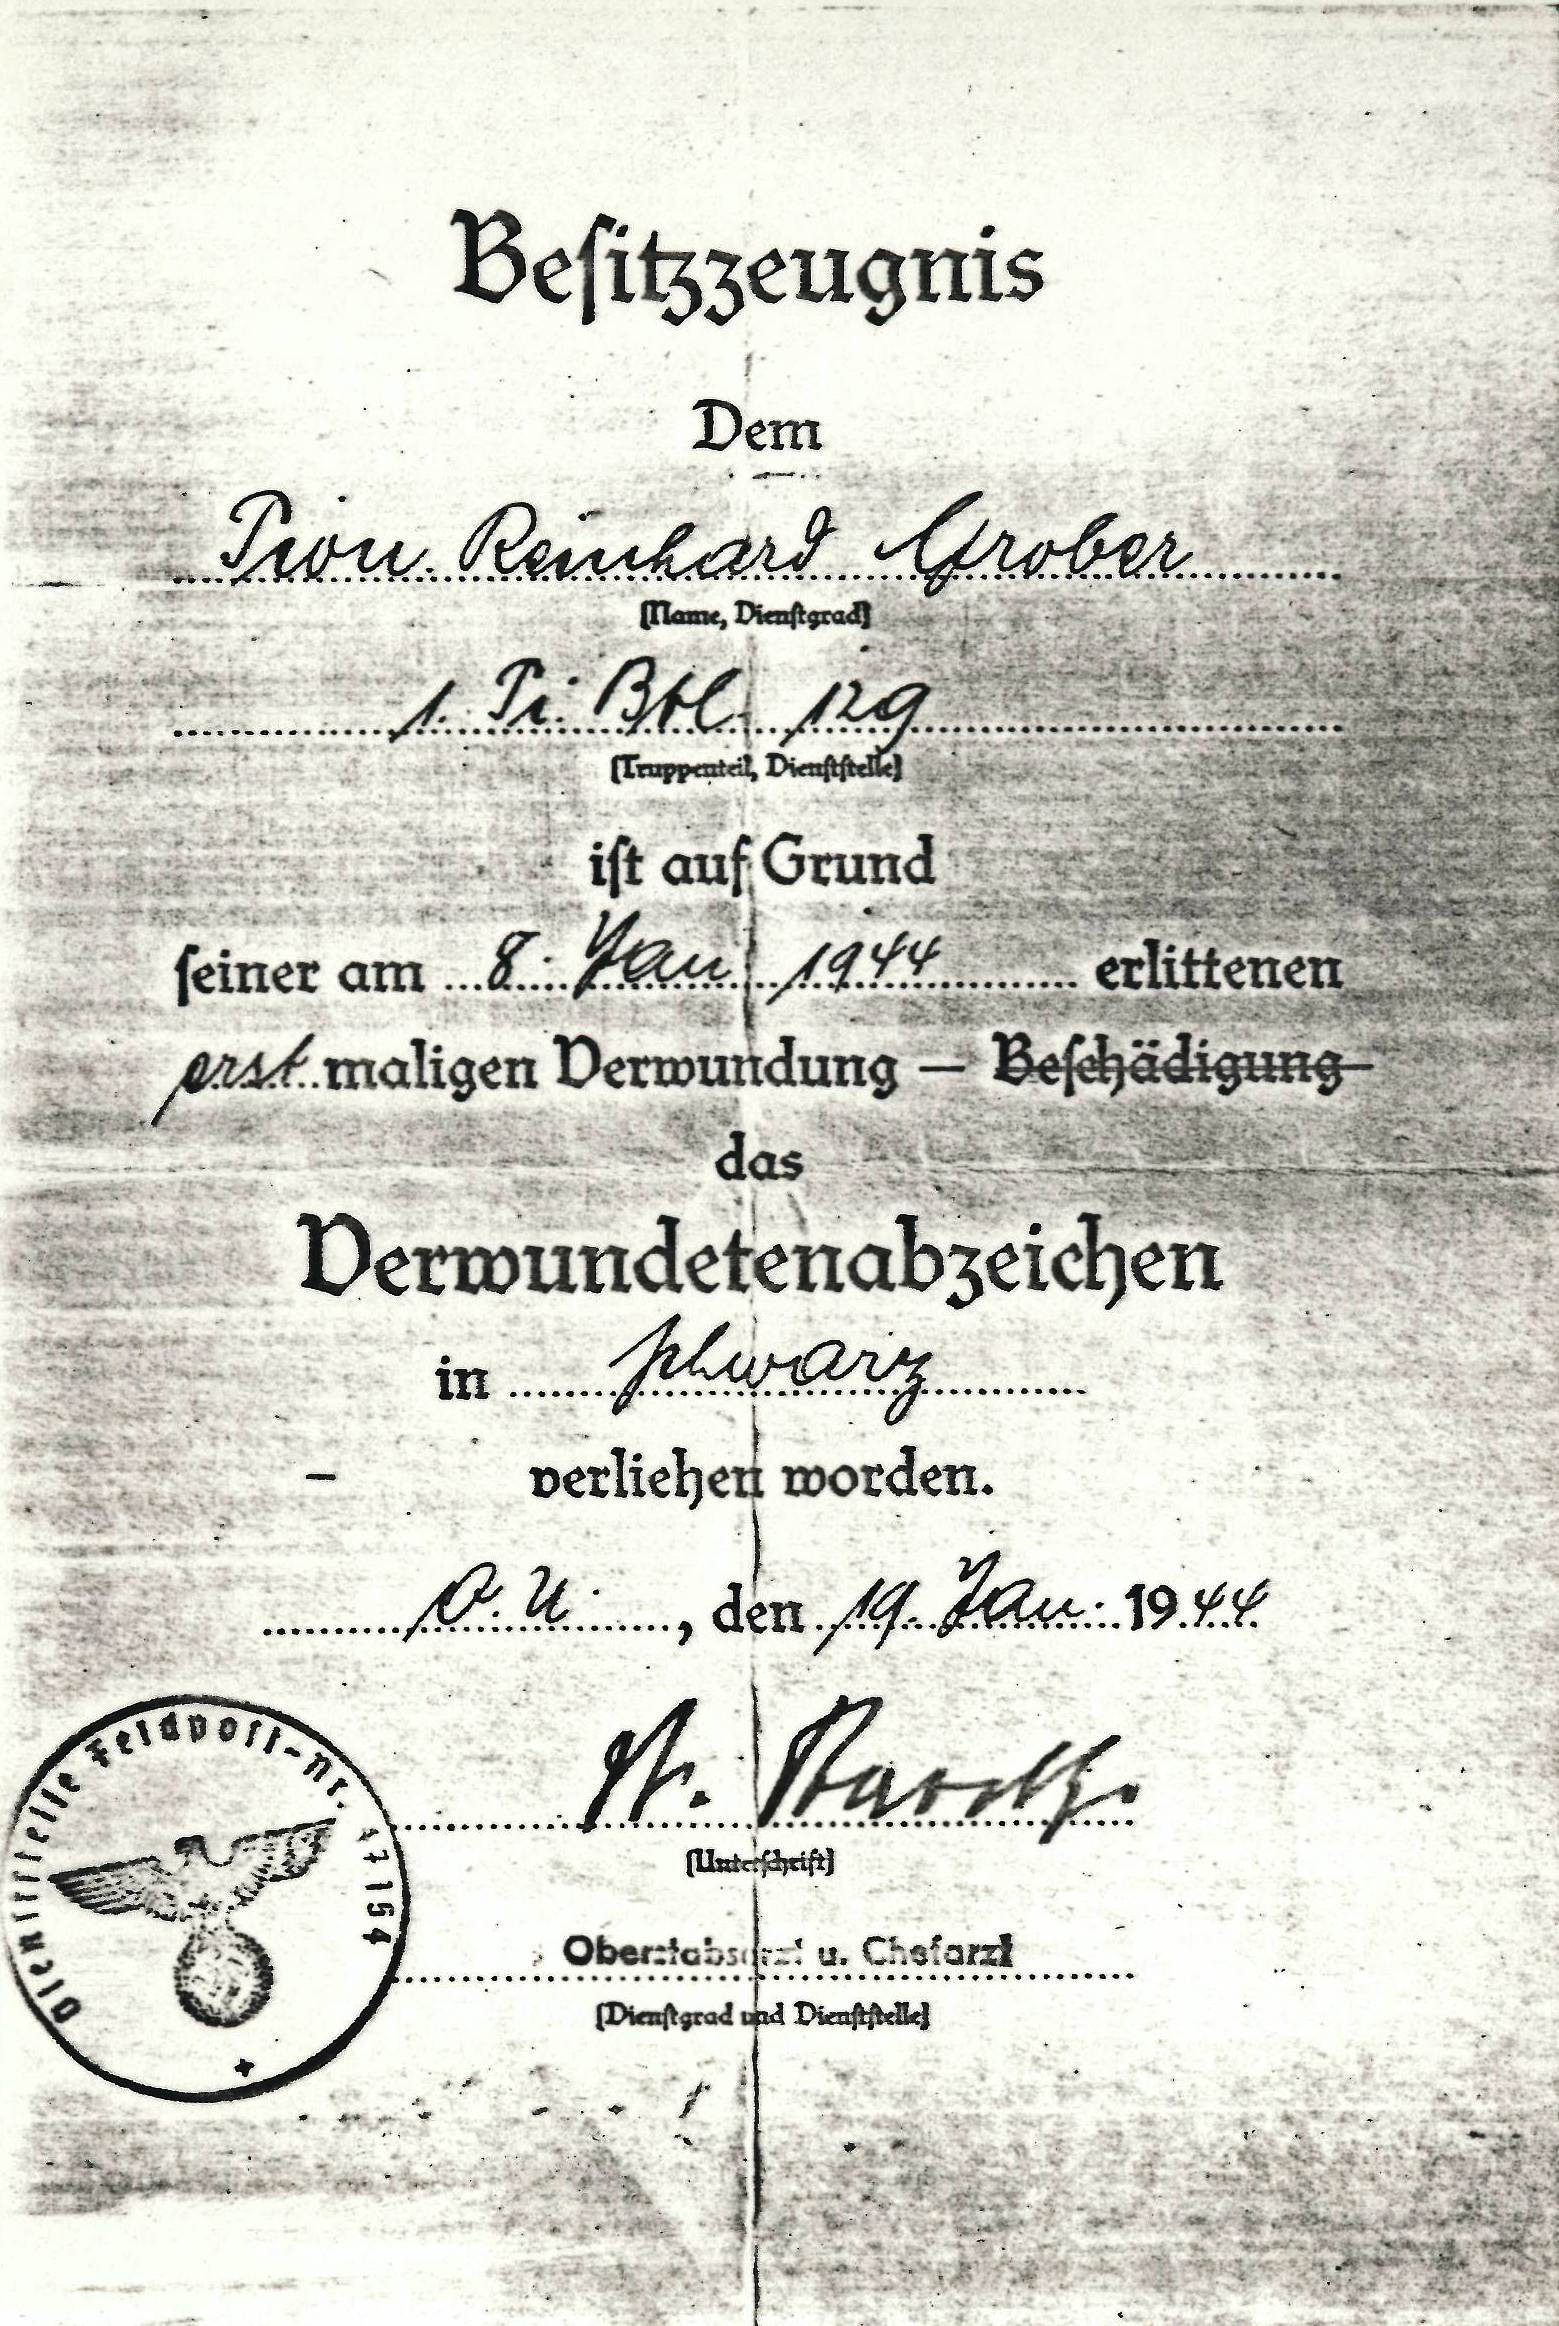 Besitzzeugnis
Dem
Pion. Reinhard Grober
(Name, Dienstgrad)
1. Pi. Btl. 129
(Truppenteil, Dienststelle)
ist auf Grund
seiner am 8. Jan 1944 erlittenen
erstmaligen Verwundung – Beschädigung
das
Verwundetenabzeichen
in schwarz
verliehen worden.
O.U., den 19. Jan. 1944
(Unterschrift)
Oberstabsarzt u. Chefarzt
(Dienstgrad und Dienststelle)
Dienststelle Feldpost-Nr. 47154